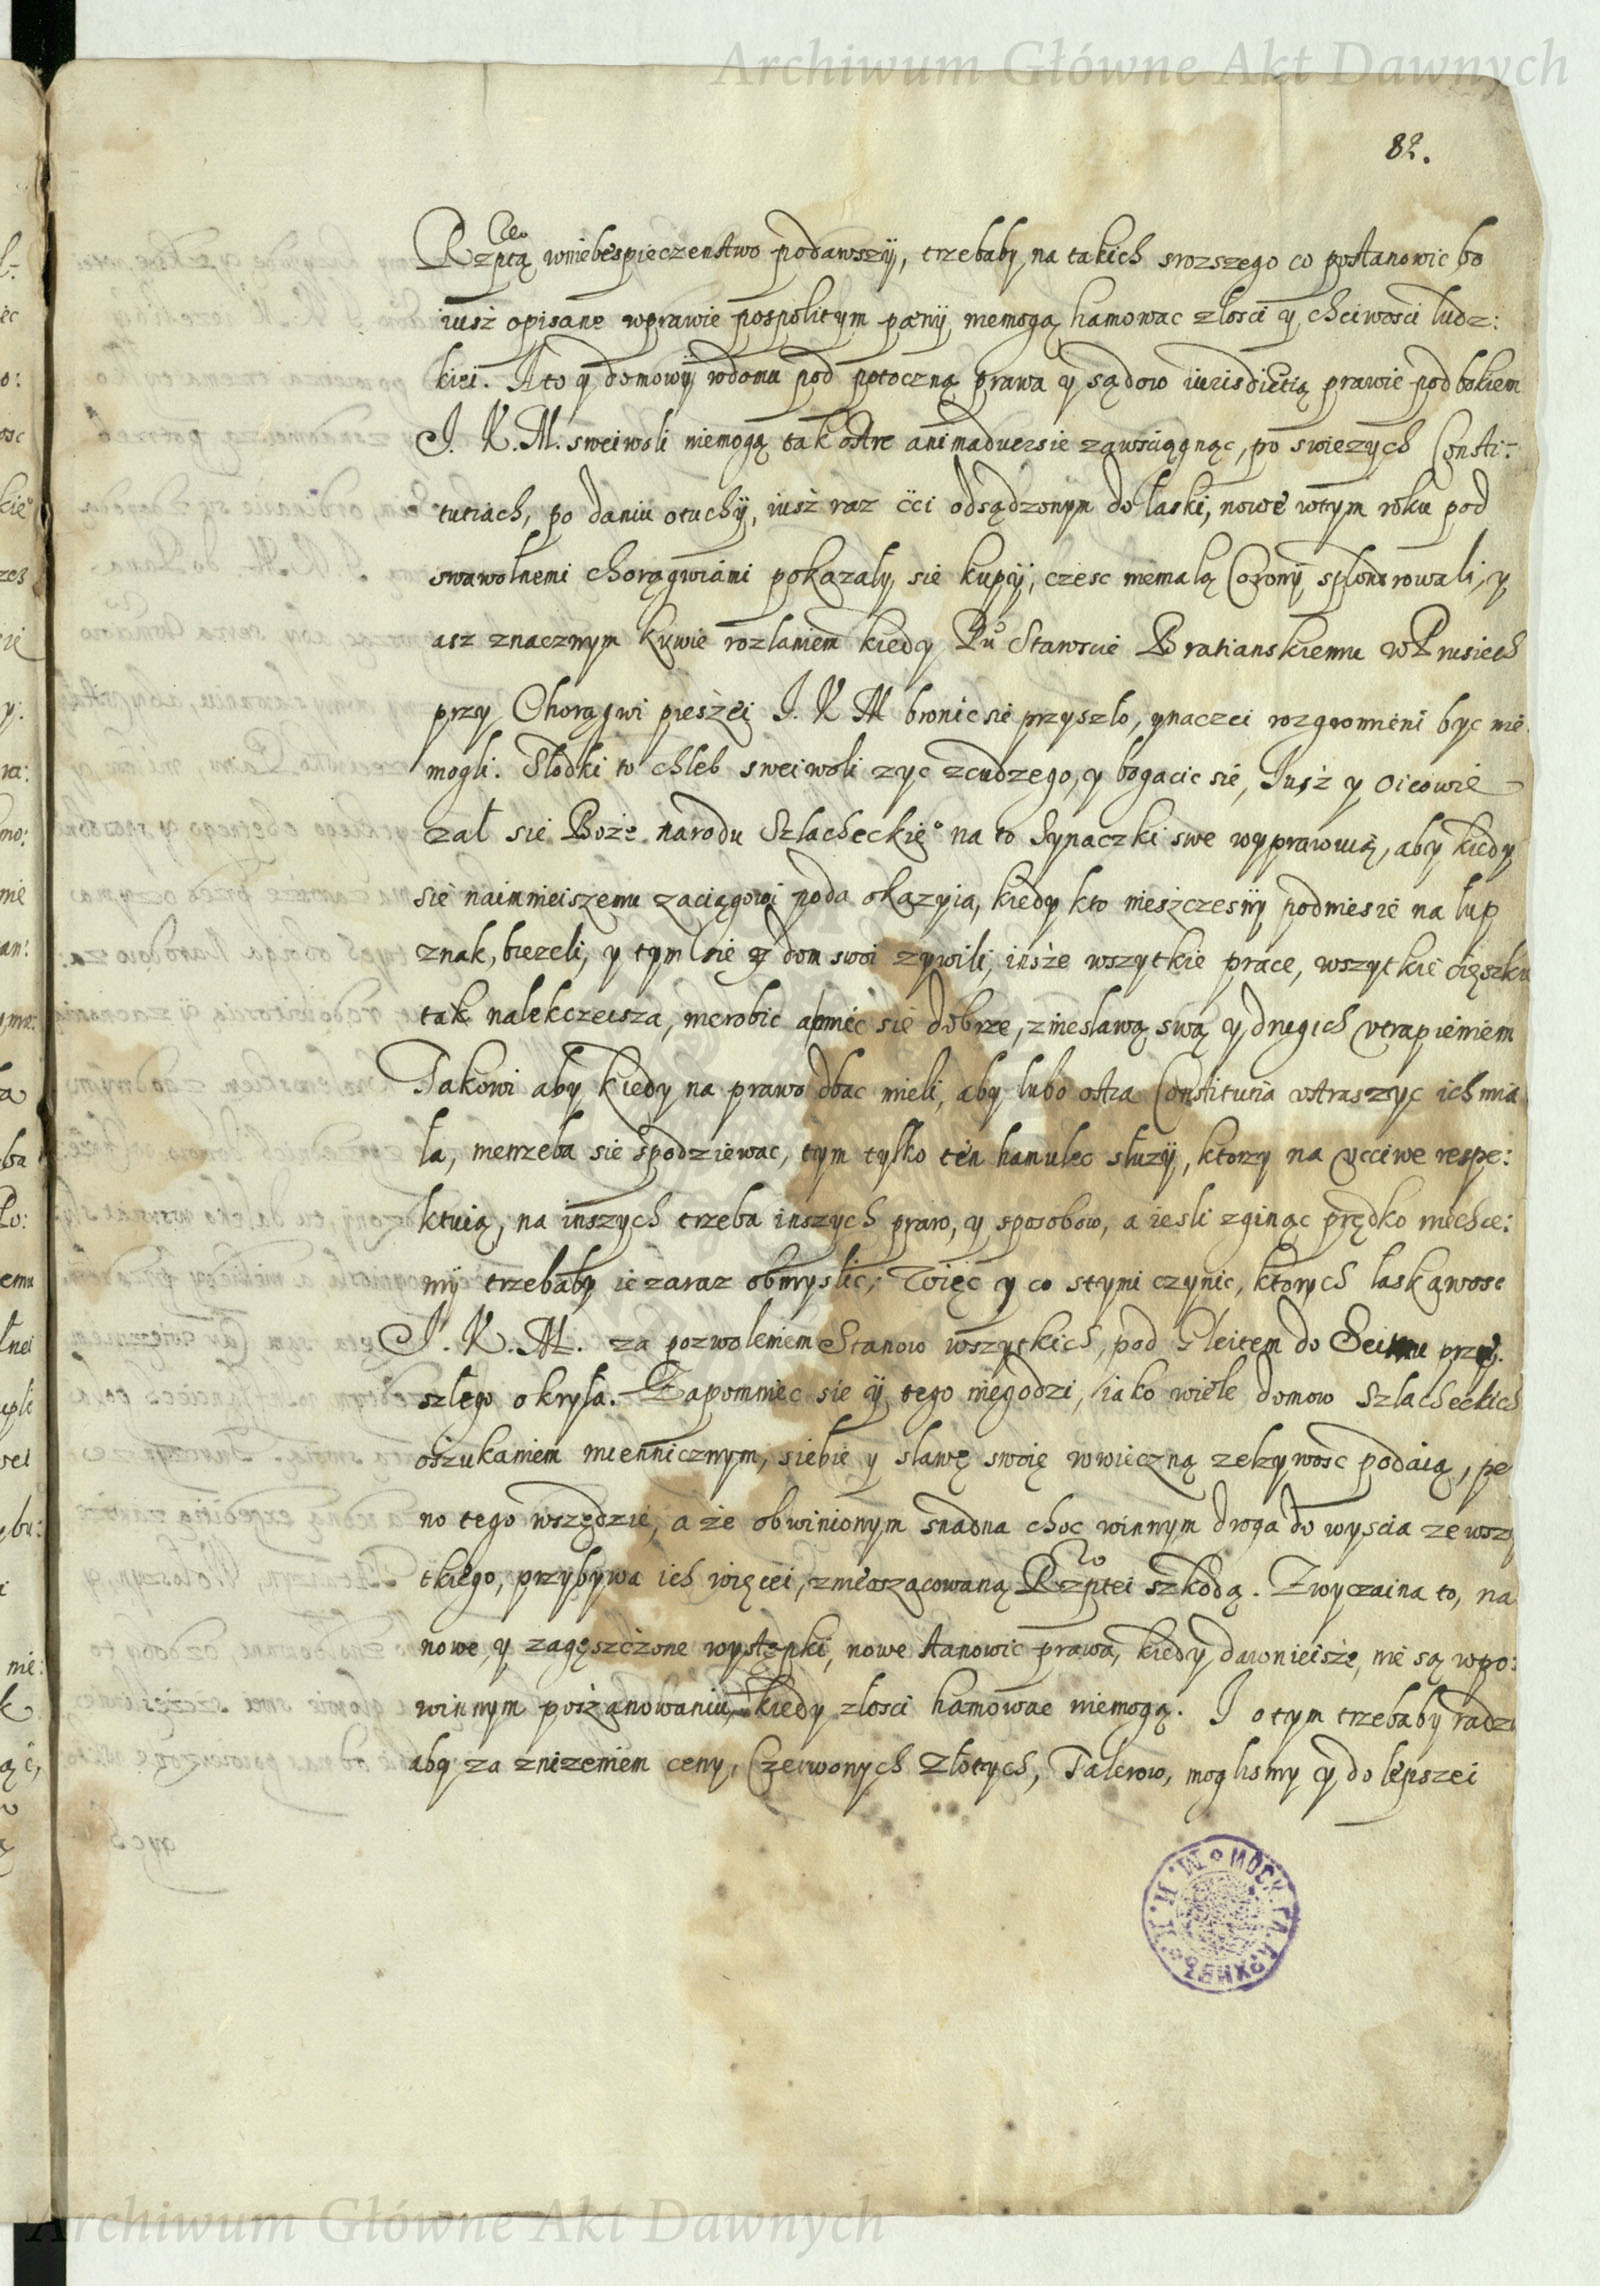 Archiwum Główne Akt Dawnych
82.
Rzptą wniebespieczenstwo podawszÿ, trzebaby na takich srozszego co postanowic bo
iusz opisane wprawie pospolitym pænÿ niemogą hamowac złosci y chciwosci ludz:
kiei. A to y domowÿ wdomu pod potoczną prawa y sądow iurisdictią prawie pod bokiem
J. K. M. sweiwoli niemogą tak ostre animadversie zawsciągnąc, po swiezych Consti:
tutiach, po daniu otuchÿ, iusz raz cci odsądzonym do łaski, nowe wtym roku pod
swawolnemi chorągwiami pokazały sie kupÿ, czesc niemałą Coronÿ splondrowali, y
asz znacznym krwie rozlaniem kiedy Pu Staroscie Bratianskiemu w Prusiech
przy Chorągwi pieszei J. K M bronic sie przyszło, ynaczei rozgromieni byc nie
mogli. Słodki to chleb sweiwoli zyc zcudzego, y bogacic sie, Jusz y oicowie
zal sie Boze narodu Szlacheckie° na to Synaczki swe wyprawuią, aby kiedy
sie naimnieiszemu zaciągowi poda okazyia, kiedy kto nieszczesnÿ podniesie na lup
znak, biezeli, y tym sie y dom swoi zywili, insze wszytkie prace, wszytkie
tak nalekczeisza, nierobic a miec sie dobrze, zniesławą swą y drugich utrapieniem
Takowi aby kiedy na prawo dbac mieli, aby lubo ostra Constitutia ustraszyc ich mia
la, nietrzeba sie spodziewac, tym tylko ten hamulec słuzÿ, ktorzy na ucciwe respe:
ktuią, na inszych trzeba inszych praw, y sposobow, a iesli zginąc prędko niechce:
mÿ trzebaby ie zaraz obmyslic; Więc y co stymi czynic, ktorych laskawosc
J. K. M. za pozwoleniem Stanow wszytkich, pod Gleitem do Seimu przy.
szłego okryła. Zapomniec sie ÿ tego niegodzi, iako wiele domow Szlacheckich
oszukaniem mennicznym, siebie y sławę swoię wwieczną zelzywosc podaią, pe
no tego wszędzie, a że obwinionym snadna choc winnym droga do wyscia ze wszy
tkiego, przybywa ich więcei, znieoszacowaną Rzptei szkodą. Zwyczaina to, na
nowe y zagęszczone występki, nowe stanowic prawa, kiedy dawnieisze, nie są wpo:
winnym poszanowaniu, kiedy złosci hamowac niemogą. I o tym trzebaby radzi
aby za znizeniem ceny, Czerwonych Złotych, Talerow, moglismy y do lepszei
Archiwum Główne Akt Dawnych